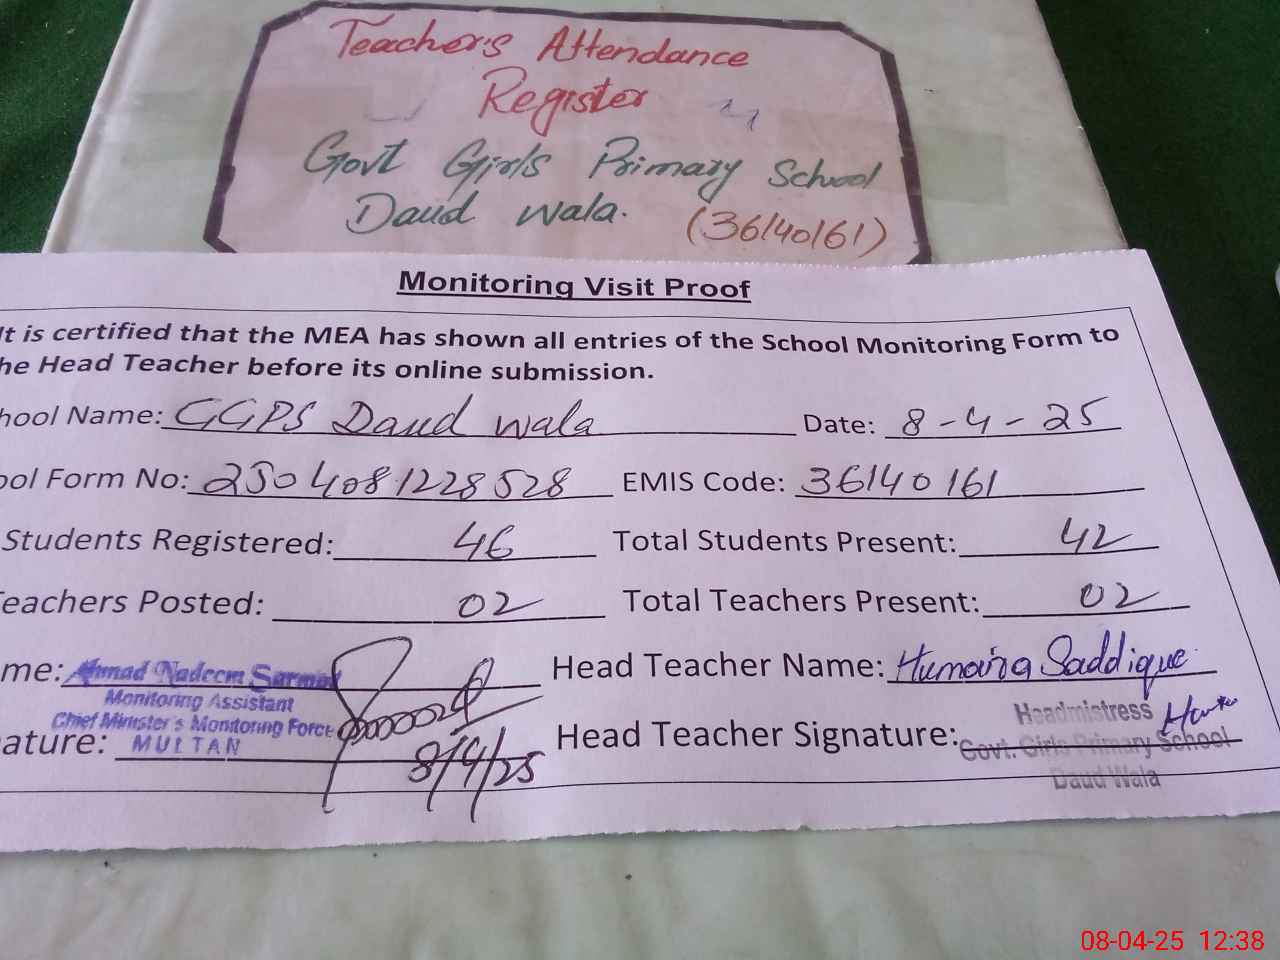 Teacher's Attendance
Register
Govt Girls Primary School
Daud wala. (36140161)
Monitoring Visit Proof
It is certified that the MEA has shown all entries of the School Monitoring Form to
he Head Teacher before its online submission.
hool Name: GGPS Daud wala Date: 8-4-25
ool Form No: 2504081228528 EMIS Code: 36140161
Students Registered: 46 Total Students Present: 42
Teachers Posted: 02 Total Teachers Present: 02
me: Ahmad Nadeem Sarmad Head Teacher Name: Humaira Saddique
Monitoring Assistant
Chief Minister's Monitoring Force
ature: MULTAN 8/4/25 Head Teacher Signature:
Headmistress
Govt. Girls Primary School
Daud Wala
08-04-25 12:38